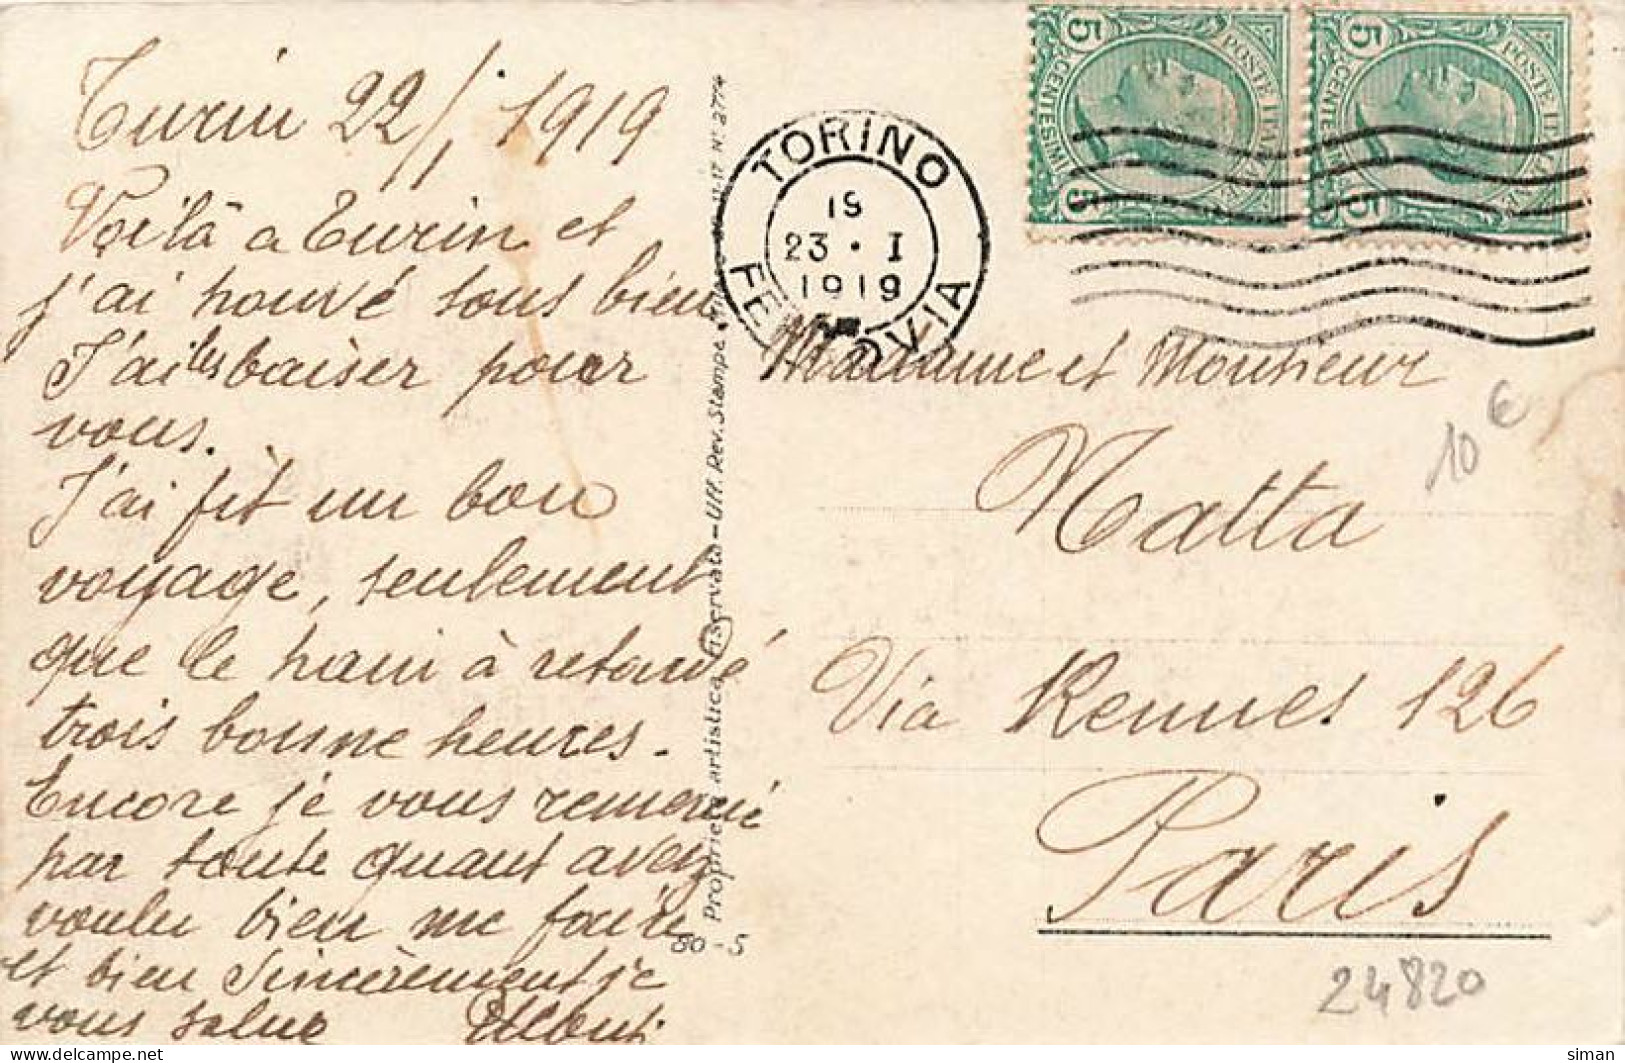 Turin 22/1 1919
Voilà a Turin et
j'ai trouvé tous bien
J'ai les baiser pour
vous.
J'ai fit un bon
voyage, seulement
que le train à retardé
trois bonne heures.
Encore je vous remercié
par toute quant avez
voulu bien me faire
et bien sincèrement je
vous salue
Proprietà artistica riservata - Uff. Rev. Stampe
N. 2774
80-5
TORINO
FERROVIA
19
23 · I
1919
5 CENTESIMI 5
POSTE ITALIANE
5 CENTESIMI 5
POSTE ITALIANE
Madame et Monsieur
Matta
Via Rennes 126
Paris
10 €
24820
siman
delcampe.net